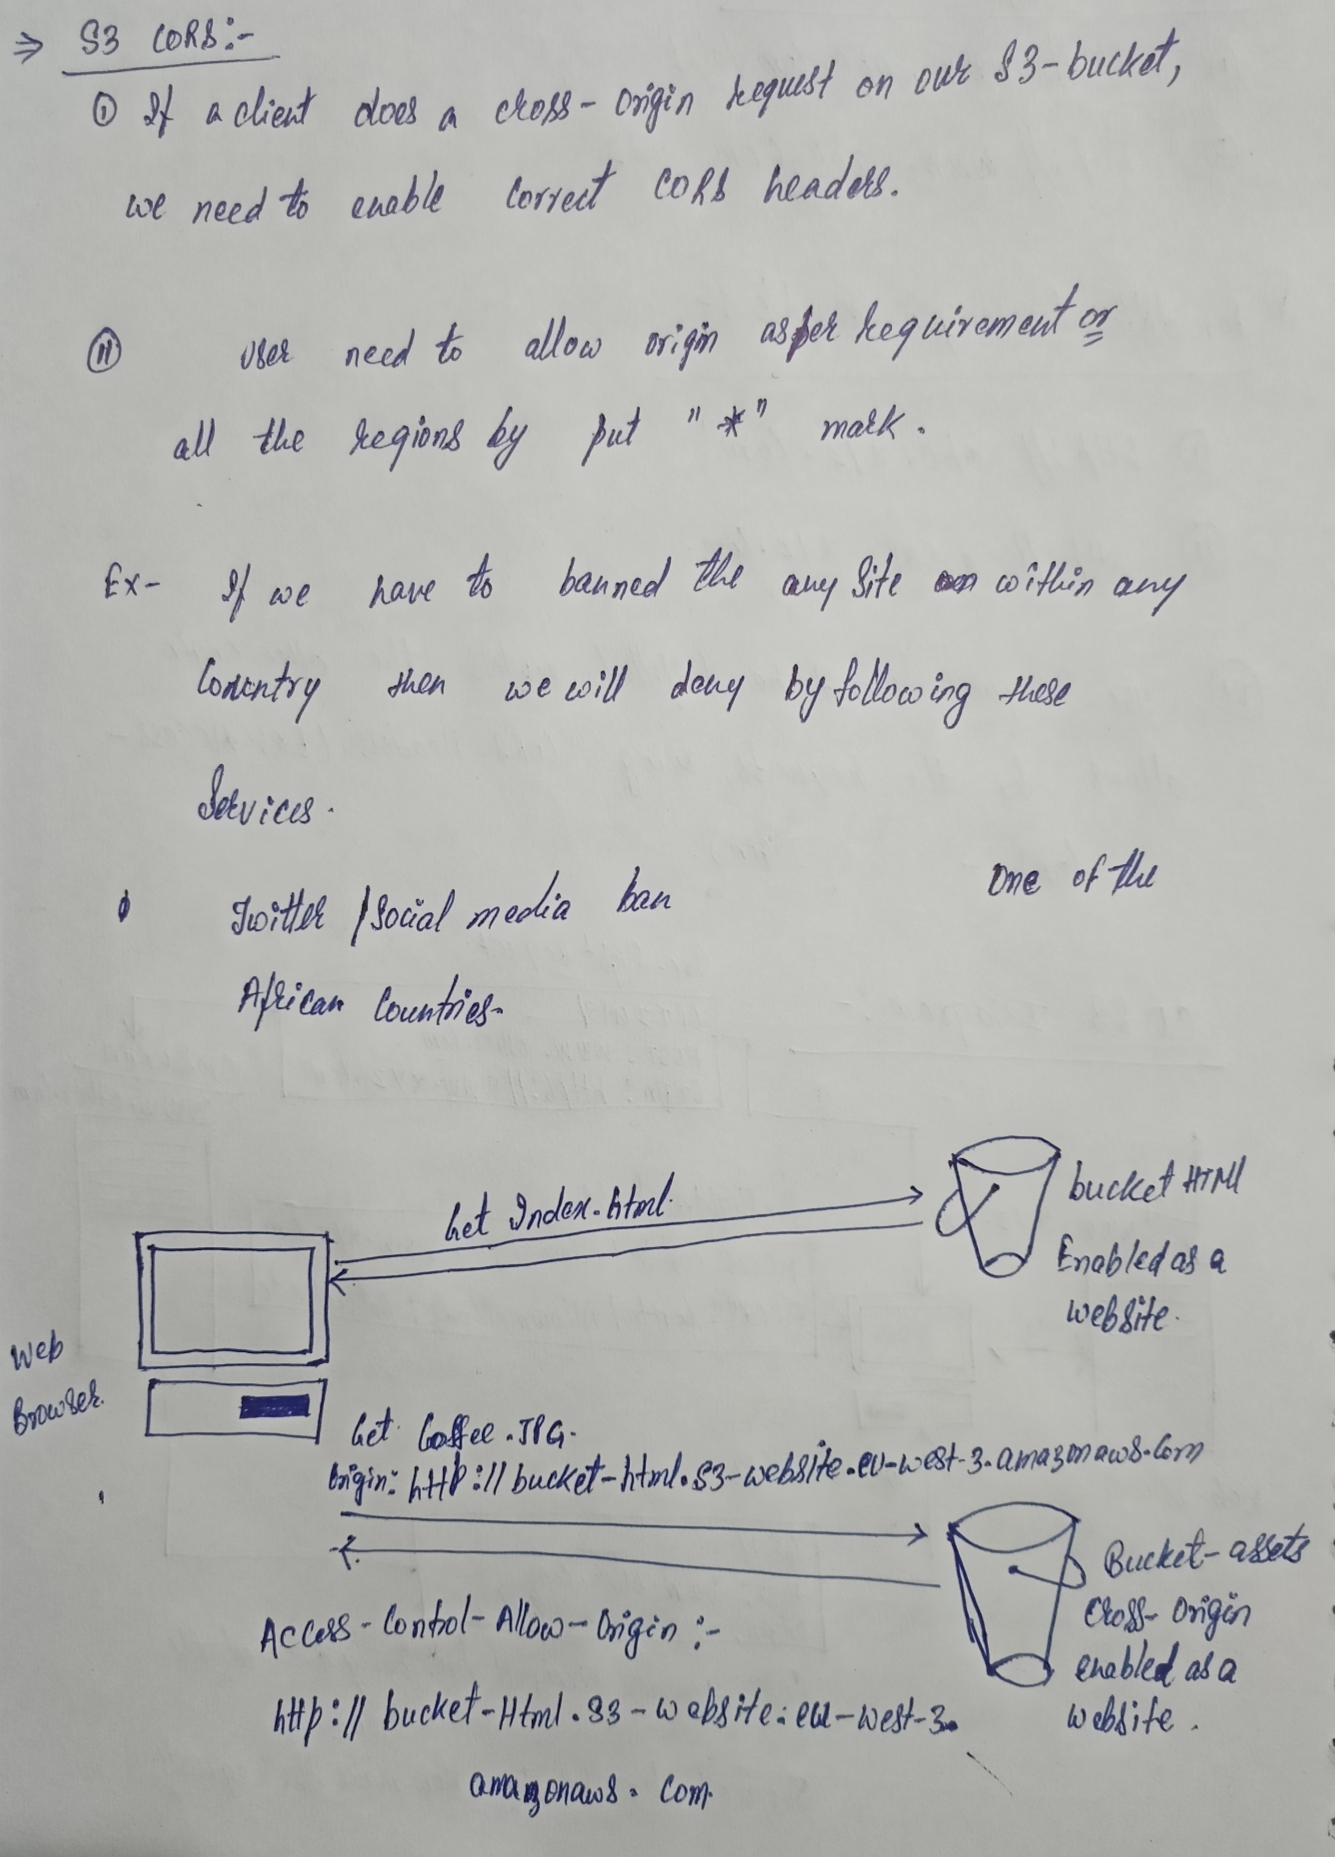 ⇒ S3 CORS:-
① If a client does a cross-origin request on our S3-bucket,
we need to enable correct CORS headers.
② user need to allow origin asper requirement or
all the regions by put "*" mark.
Ex- If we have to banned the any site within any
Country then we will deny by following these
Services.
Twitter / Social media ban One of the
African Countries-
Get Index.html.
bucket HTML
Enabled as a
website.
Web
Browser.
Get Coffee.JPG.
Origin: http://bucket-html.S3-website.eu-west-3.amazonaws.com
Bucket-assets
Cross-Origin
enabled as a
website.
Access-Control-Allow-Origin:-
http://bucket-Html.S3-website.eu-west-3.
amazonaws.com.